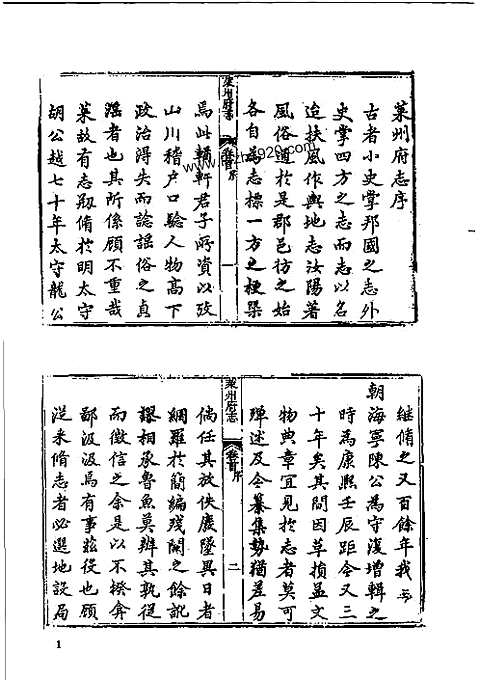 萊州府志序
古者小史掌邦國之志外
史掌四方之志而志以名
迨扶風作輿地志汝陽著
風俗通於是郡邑彷之始
各自為志標一方之梗槩
萊州府志 卷首 序 一
焉此輶軒君子所資以攷
山川稽户口驗人物高下
政治得失而諗謡俗之貞
淫者也其所係顧不重哉
萊故有志刱脩於明太守
胡公越七十年太守龍公
継脩之又百餘年我
朝海寧陳公為守復增輯之
時為康熙壬辰距今又三
十年矣其間因革損益文
物典章宜見於志者莫可
殫述及今纂集勢猶差易
萊州府志 卷首 序 二
倘任其放佚廢墜異日者
網羅於簡編殘闕之餘訛
謬相承魯魚莫辨其孰從
而徵信之余是以不揆弇
鄙汲汲焉有事茲役也顧
從来脩志者必選地設局
1